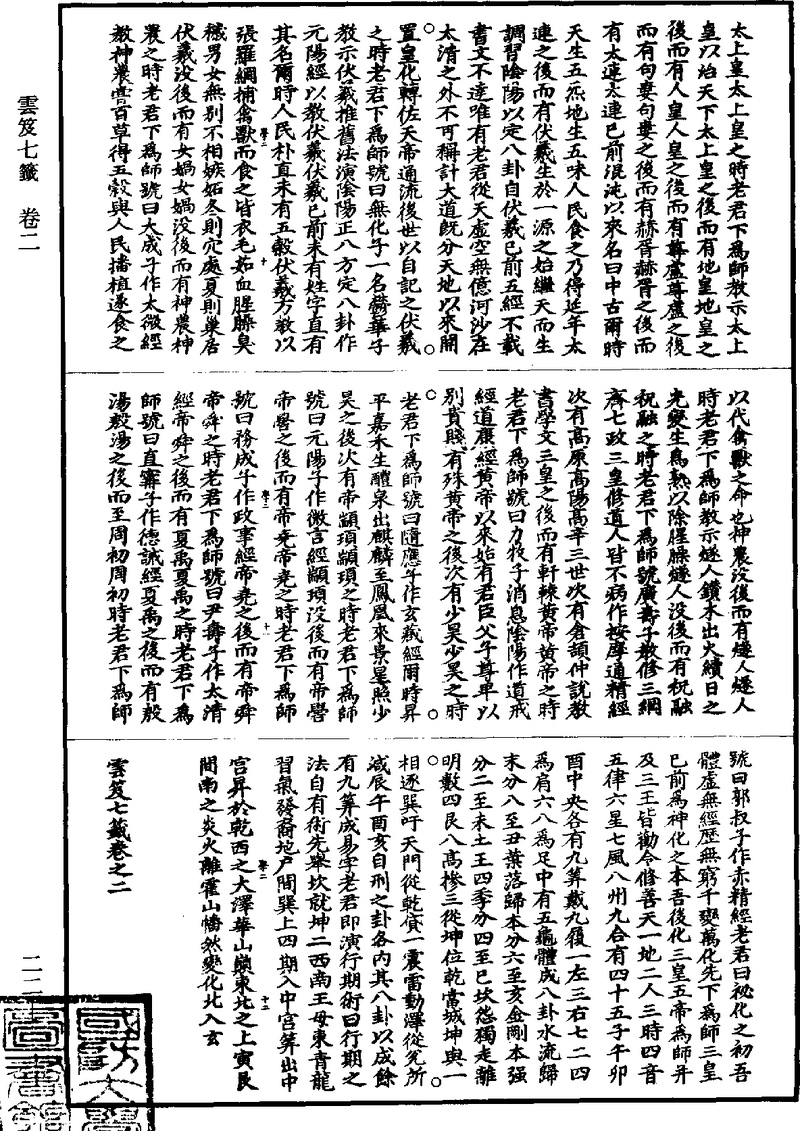 太上皇太上皇之時老君下為師教示太上
皇以治天下太上皇之後而有地皇地皇之
後而有人皇人皇之後而有尊盧尊盧之後
而有句婁句婁之後而有赫胥赫胥之後而
有太連太連已前混沌以來名曰中古爾時
天生五炁地生五味人民食之乃得延年太
連之後而有伏羲生於一源之始繼天而生
調習陰陽以定八卦自伏羲已前五經不載
書文不達唯有老君從天虛空無億河沙在
太清之外不可稱計大道既分天地以來開
置皇化轉佐天帝通流後世以自記之伏羲
之時老君下為師號曰無化子一名鬱華子
教示伏羲推舊法演陰陽正八方定八卦作
元陽經以教伏羲伏羲已前未有姓字直有
其名爾時人民朴直未有五穀伏羲方教以
張羅網捕禽獸而食之皆衣毛茹血腥臊臭
穢男女無別不相嫉妬冬則穴處夏則巢居
伏羲沒後而有女媧女媧沒後而有神農神
農之時老君下為師號曰大成子作太微經
教神農嘗百草得五穀與人民播植遂食之
以代禽獸之命也神農沒後而有燧人燧人
時老君下為師教示燧人鑽木出火續日之
光變生為熟以除腥臊燧人沒後而有祝融
祝融之時老君下為師號廣壽子教修三綱
齊七政三皇修道人皆不病作按摩通精經
次有高原高陽高辛三世次有倉頡仲說教
書學文三皇之後而有軒轅黃帝黃帝之時
老君下為師號曰力牧子消息陰陽作道戒
經道康經黃帝以來始有君臣父子尊卑以
別貴賤有殊黃帝之後次有少昊少昊之時
老君下為師號曰隨應子作玄藏經爾時昇
平嘉禾生醴泉出麒麟至鳳凰來景星照少
昊之後次有帝顓頊顓頊之時老君下為師
號曰元陽子作微言經顓頊沒後而有帝嚳
帝嚳之後而有帝堯帝堯之時老君下為師
號曰務成子作政事經帝堯之後而有帝舜
帝舜之時老君下為師號曰尹壽子作太清
經帝舜之後而有夏禹夏禹之時老君下為
師號曰直寧子作德誡經夏禹之後而有殷
湯殷湯之後而至周初周初時老君下為師
號曰郭叔子作赤精經老君曰祕化之初吾
體虛無經歷無窮千變萬化先下為師三皇
已前為神化之本吾後化三皇五帝為師并
及三王皆勸令修善天一地二人三時四音
五律六星七風八州九合有四十五子午卯
酉中央各有九筭戴九履一左三右七二四
為肩六八為足中有五龜體成八卦水流歸
末分八至丑葉落歸本分六至亥金剛本强
分二至未土王四季分四至巳坎㤪獨走離
明數四艮八高摻三從坤位乾當城坤與一
相逐巽吁天門從乾貸一震雷動澤從兌所
減辰午酉亥自刑之卦各內其八卦以成餘
有九筭成易字老君即演行期術曰行期之
法自有術先舉坎就坤二西南王母東青龍
習氣發裔地戶間巽上四期入中宮筭出中
宮昇於乾西之大澤華山巔東北之上寅艮
間南之炎火離霍山幡然變化北入玄
雲笈七籤卷之二
雲笈七籤 卷二